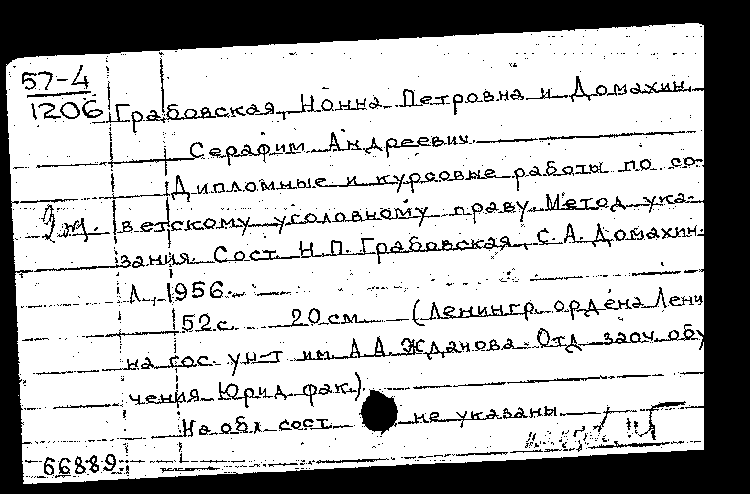 57-4
1206 Грабовская, Нонна Петровна и Домахин,
Серафим Андреевич.
Дипломные и курсовые работы по со-
2 экз. ветскому уголовному праву. Метод. ука-
зания. Сост. Н.П. Грабовская, С.А. Домахин.
Л., 1956.
52 с. 20 см. (Ленингр. ордена Лени
на гос. ун-т им. А.А. Жданова. Отд. заоч. обу
чения Юрид. фак.)
На обл. сост. не указаны.
66889.